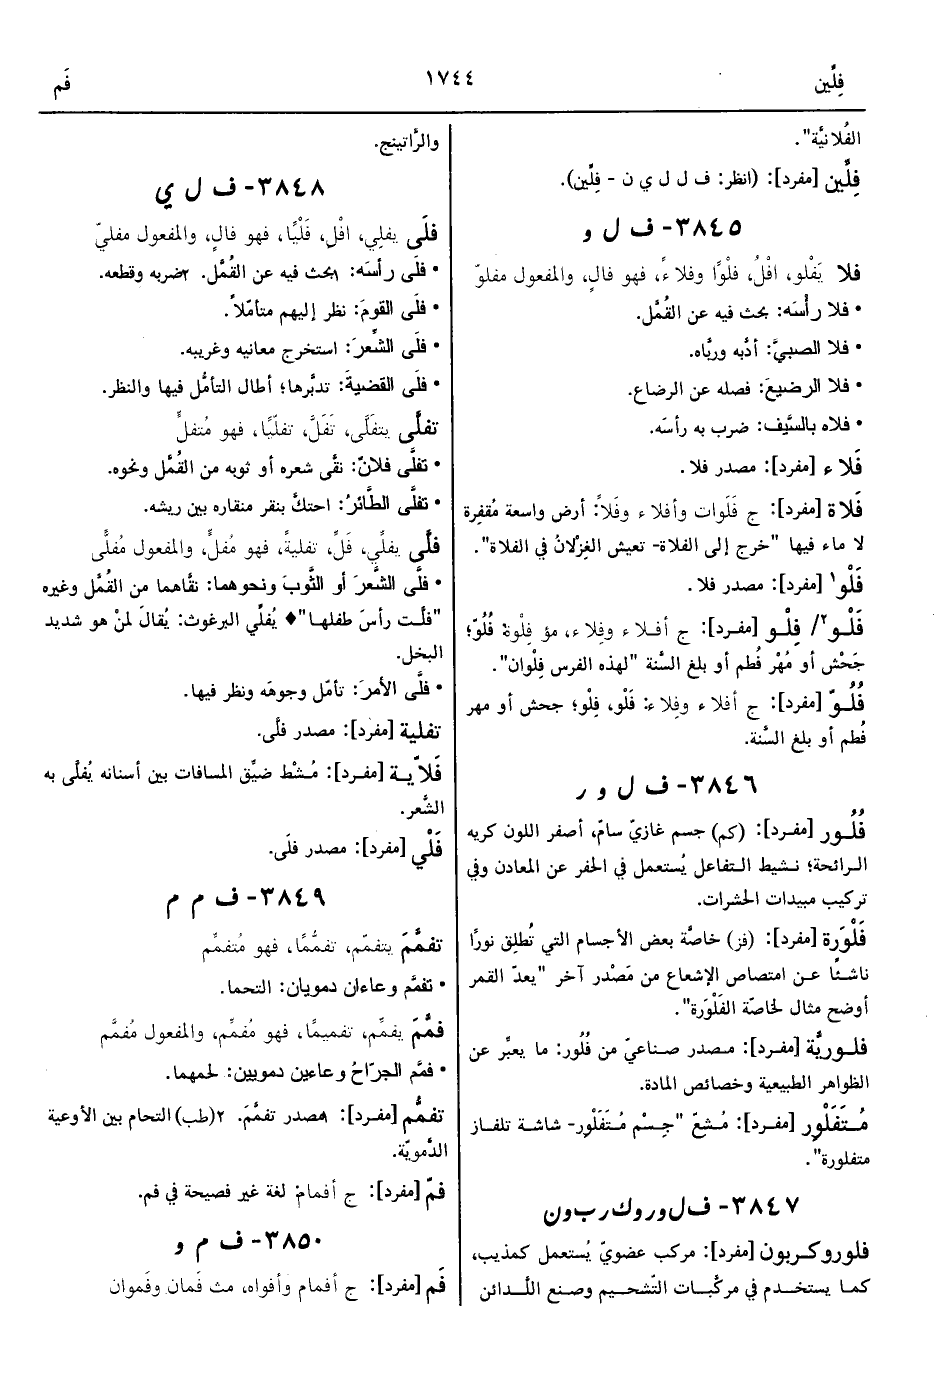 فِلِّين ١٧٤٤ فَم
الفُلانيَّة".
فِلِّين [مفرد]: (انظر: ف ل ل ي ن - فِلِّين).
٣٨٤٥- ف ل و
فلا يَفْلو، افْلُ، فلْوًا وفلاءً، فهو فالٍ، والمفعول مفلوّ
• فلا رأْسَه: بحث فيه عن القُمَّل.
• فلا الصبيَّ: أدَّبه وربَّاه.
• فلا الرضيعَ: فصله عن الرضاع.
• فلاه بالسَّيف: ضرب به رأسَه.
فَلاء [مفرد]: مصدر فلا.
فَلاة [مفرد]: ج فَلَوات وأفلاء وفَلاً: أرض واسعة مُقفِرة
لا ماء فيها "خرج إلى الفلاة- تعيش الغِزْلانُ في الفلاة".
فَلْو١ [مفرد]: مصدر فلا.
فَلْـو٢/ فِلْـو [مفـرد]: ج أفـلاء وفِلاء، مؤ فِلْوة فُلُوّ؛
جَحْش أو مُهْر فُطم أو بلغ السَّنة "لهذه الفرس فِلْوان".
فُلُـوّ [مفرد]: ج أفلاء وفِلاء: فَلو، فِلْو؛ جحش أو مهر
فُطم أو بلغ السَّنة.
٣٨٤٦- ف ل و ر
فُلُـور [مفـرد]: (كم) جسم غازيّ سامّ، أصفر اللون كريه
الـرائحة؛ نـشيط الـتفاعل يُستعمل في الحفر عن المعادن وفي
تركيب مبيدات الحشرات.
فَلْوَرَة [مفرد]: (فز) خاصَّة بعض الأجسام التي تُطلِق نورًا
ناشـئًا عـن امتصاص الإشعاع من مَصْدر آخر "يعدّ القمر
أوضح مثال لخاصّة الفَلْوَرة".
فلـوريَّة [مفـرد]: مـصدر صـناعيّ من فُلُور: ما يعبِّر عن
الظواهر الطبيعية وخصائص المادة.
مُـتَفَلْوِر [مفـرد]: مُـشعّ "جِـسْم مُـتَفَلْوِر- شاشـة تلفـاز
متفلورة".
٣٨٤٧- ف ل و ر و ك ر ب و ن
فلوروكـربون [مفرد]: مركب عضويّ يُستعمل كمذيب،
كمـا يستخـدم في مركّبـات التّشحيم وصنع اللَّدائن
والرَّاتينج.
٣٨٤٨- ف ل ي
فلَى يفلِي، افْلِ، فَلْيًا، فهو فالٍ، والمفعول مفليّ
• فلَى رأسَه: ١بحث فيه عن القُمَّل. ٢ضربه وقطعه.
• فلَى القومَ: نظر إليهم متأمّلاً.
• فلَى الشِّعرَ: استخرج معانيه وغريبه.
• فلَى القضيةَ: تدبَّرها؛ أطال التأمُّل فيها والنظر.
تفلَّى يتفلَّى، تَفَلَّ، تفلّيًا، فهو مُتفلٍّ
• تفلَّى فلانٌ: نقَّى شعره أو ثوبه من القُمَّل ونحوه.
• تفلَّى الطَّائرُ: احتكَّ بنقر منقاره بين ريشه.
فلَّى يفلِّي، فَلِّ، تفليةً، فهو مُفلٍّ، والمفعول مُفلًّى
• فلَّى الشَّعرَ أو الثَّوبَ ونحوهما: نقَّاهما من القُمَّل وغيره
"فلَّت رأسَ طفلهـا"♦ يُفلِّي البرغوث: يُقالَ لمنْ هو شديد
البخل.
• فلَّى الأمرَ: تأمّل وجوهَه ونظر فيها.
تفلية [مفرد]: مصدر فلَّى.
فَلاَّيـة [مفـرد]: مُـشْط ضيِّق المسافات بين أسنانه يُفلَّى به
الشَّعر.
فَلْي [مفرد]: مصدر فلَى.
٣٨٤٩- ف م م
تفمَّمَ يتفمّم، تفمُّمًا، فهو مُتفمِّم
• تفمَّم وعاءان دمويان: التحما.
فمَّمَ يفمِّم، تفميمًا، فهو مُفمِّم، والمفعول مُفمَّم
• فمَّم الجرّاحُ وعاءين دمويين: لحمهما.
تفمُّم [مفرد]: ١مصدر تفمَّمَ. ٢(طب) التحام بين الأوعية
الدَّمويّة.
فمّ [مفرد]: ج أفمام: لغة غير فصيحة في فم.
٣٨٥٠- ف م و
فَم [مفرد]: ج أفمام وأفواه، مث فَمان وفَموان